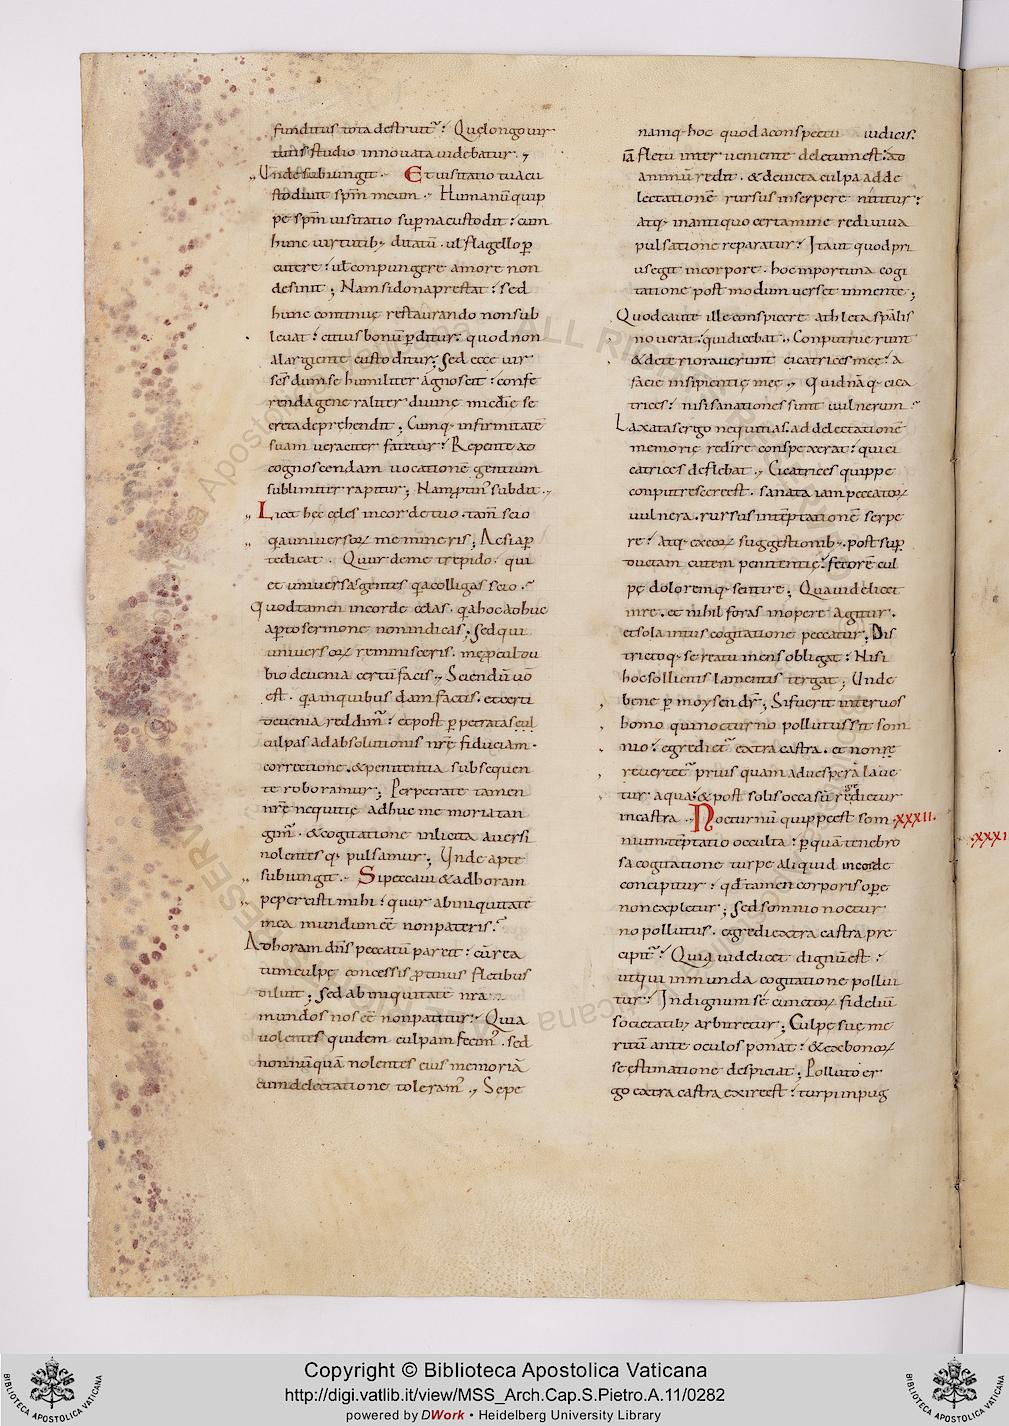 funditus tota destruit᷑? Quę longo vir
tutis studio innovata videbatur. 7
„ Unde subiungit. Et visitatio tua cu
stodivit spm̄ meum. Humanū quip
pe spm̄ visitatio supna custodit: cum
hunc virtutib; ditatū. ul flagello p̱
cutere: ul conpungere amore non
desinit; Nam si dona prestat: sed
hunc continuę restaurando non sub
levat: citius bonū p̱ditur: quod non
a largiente custoditur; Sed ecce vir
scs̄ dum se humiliter agnoscit: confe
renda generaliter divinę mis̄die se
creta deprehendit; Cumq; infirmitatē
suam veraciter fatetur: Repente ad
cognoscendam vocationē gentium
sublimiter rapitur; Nam p̱tin᷒ subdit.,
„ Licet hec celes in corde tuo. tam̄ scio
„ q̄a universoꝝ memineris; Ac si ap̱
te dicat. Quur de me trepido. qui
et universas gentes q̄a colligas scio.?
Quod tamen in corde celas. q̄a hoc adhuc
ap̱to sermone non indicas; Sed qui
universoꝝ reminisceris. me p̱cul du
bio de venia certū facis., Sciendū v̄o
est. q̄a in quibusdam factis. et certi
de venia reddim᷒: et post p̱petratas cul
culpas ad absolutionis nr̄ę fiduciam.
correctione. & penitentia subsequen
te roboramur; Perpetratę tamen
nr̄ę nequitię adhuc memoria tan
gim᷒. & cogitatione inlicita aversi
nolentesq; pulsamur; Unde apte
„ subiungit. Si peccavi & ad horam
„ pepercisti mihi: quur ab iniquitate
mea mundum ēe non pateris?
Ad horam dn̄s peccatū parcit: cū rea
tum culpę concessis p̱tinus fletibus
diluit; Sed ab iniquitate nr̄a
mundos nos ēe non patitur: Quia
volentes quidem culpam fecim᷒. sed
non nūquā nolentes eius memoriā
cum delectatione toleram᷒., Sepe
namq; hoc quod a conspectu iudicis:
iā fletu interveniente deletum est: ad
animū redit. & devicta culpa ad de
lectationē rursus inserpere nititur:
atq; in antiquo certamine rediviva
pulsatione reparatur: Ita ut quod pri
us egit in corpore. hoc inportuna cogi
tatione postmodum verset in mente;
Quod caute ille conspicere athleta sp̄alis
noverat: qui dicebat., Conputruerunt
& deterioraverunt cicatrices meę: a
facie insipientię meę., Quid nāq; cica
trices: nisi sanationes sunt vulnerum?
Laxatas ergo nequitias. ad delectationē
memorię redire conspexerat: qui ci
catrices deflebat., Cicatrices quippe
conputrescere est. sanata iam peccatoꝝ
vulnera. rursus in tēptationē serpe
re: atq; ex eoꝝ suggestionib;. post sup̱
ductam cutem penitentię: fetorē cul
pę doloremq; sentire; Qua videlicet
in re. et nihil foras in opere agitur.
et sola intus cogitatione peccatur; Dis
trictoq; se reatu mens obligat: Nisi
hoc sollicitis lamentis tergat; Unde
bene p̱ moysen dr̄; Si fuerit inter vos
homo qui nocturno pollutus sit som
nio: egrediet᷑ extra castra. et non re
revertet᷑ prius quam ad vesperā lave
tur aqua: & post solis occasū regredietur
in castra., Nocturnū quippe est som
XXXII.
nium. tēptatio occulta: p̱ quā tenebro
sa cogitatione turpe aliquid in corde
concipitur: qd̄ tamen corporis op̱e
non expletur; Sed somnio noctur
no pollutus. egredi extra castra pre
cipit᷑: Quia videlicet dignū est:
ut qui immunda cogitatione pollui
tur: Indignum sē cunctoꝝ fideliū
societatib; arbitretur; Culpę suę me
ritū ante oculos ponat: & ex bonoꝝ
se estimatione despiciat; Polluto er
go extra castra exire est: turpi inpug
XXXI
Copyright © Biblioteca Apostolica Vaticana
http://digi.vatlib.it/view/MSS_Arch.Cap.S.Pietro.A.11/0282
powered by DWork • Heidelberg University Library
BIBLIOTECA APOSTOLICA VATICANA
BIBLIOTECA APOSTOLICA VATICANA